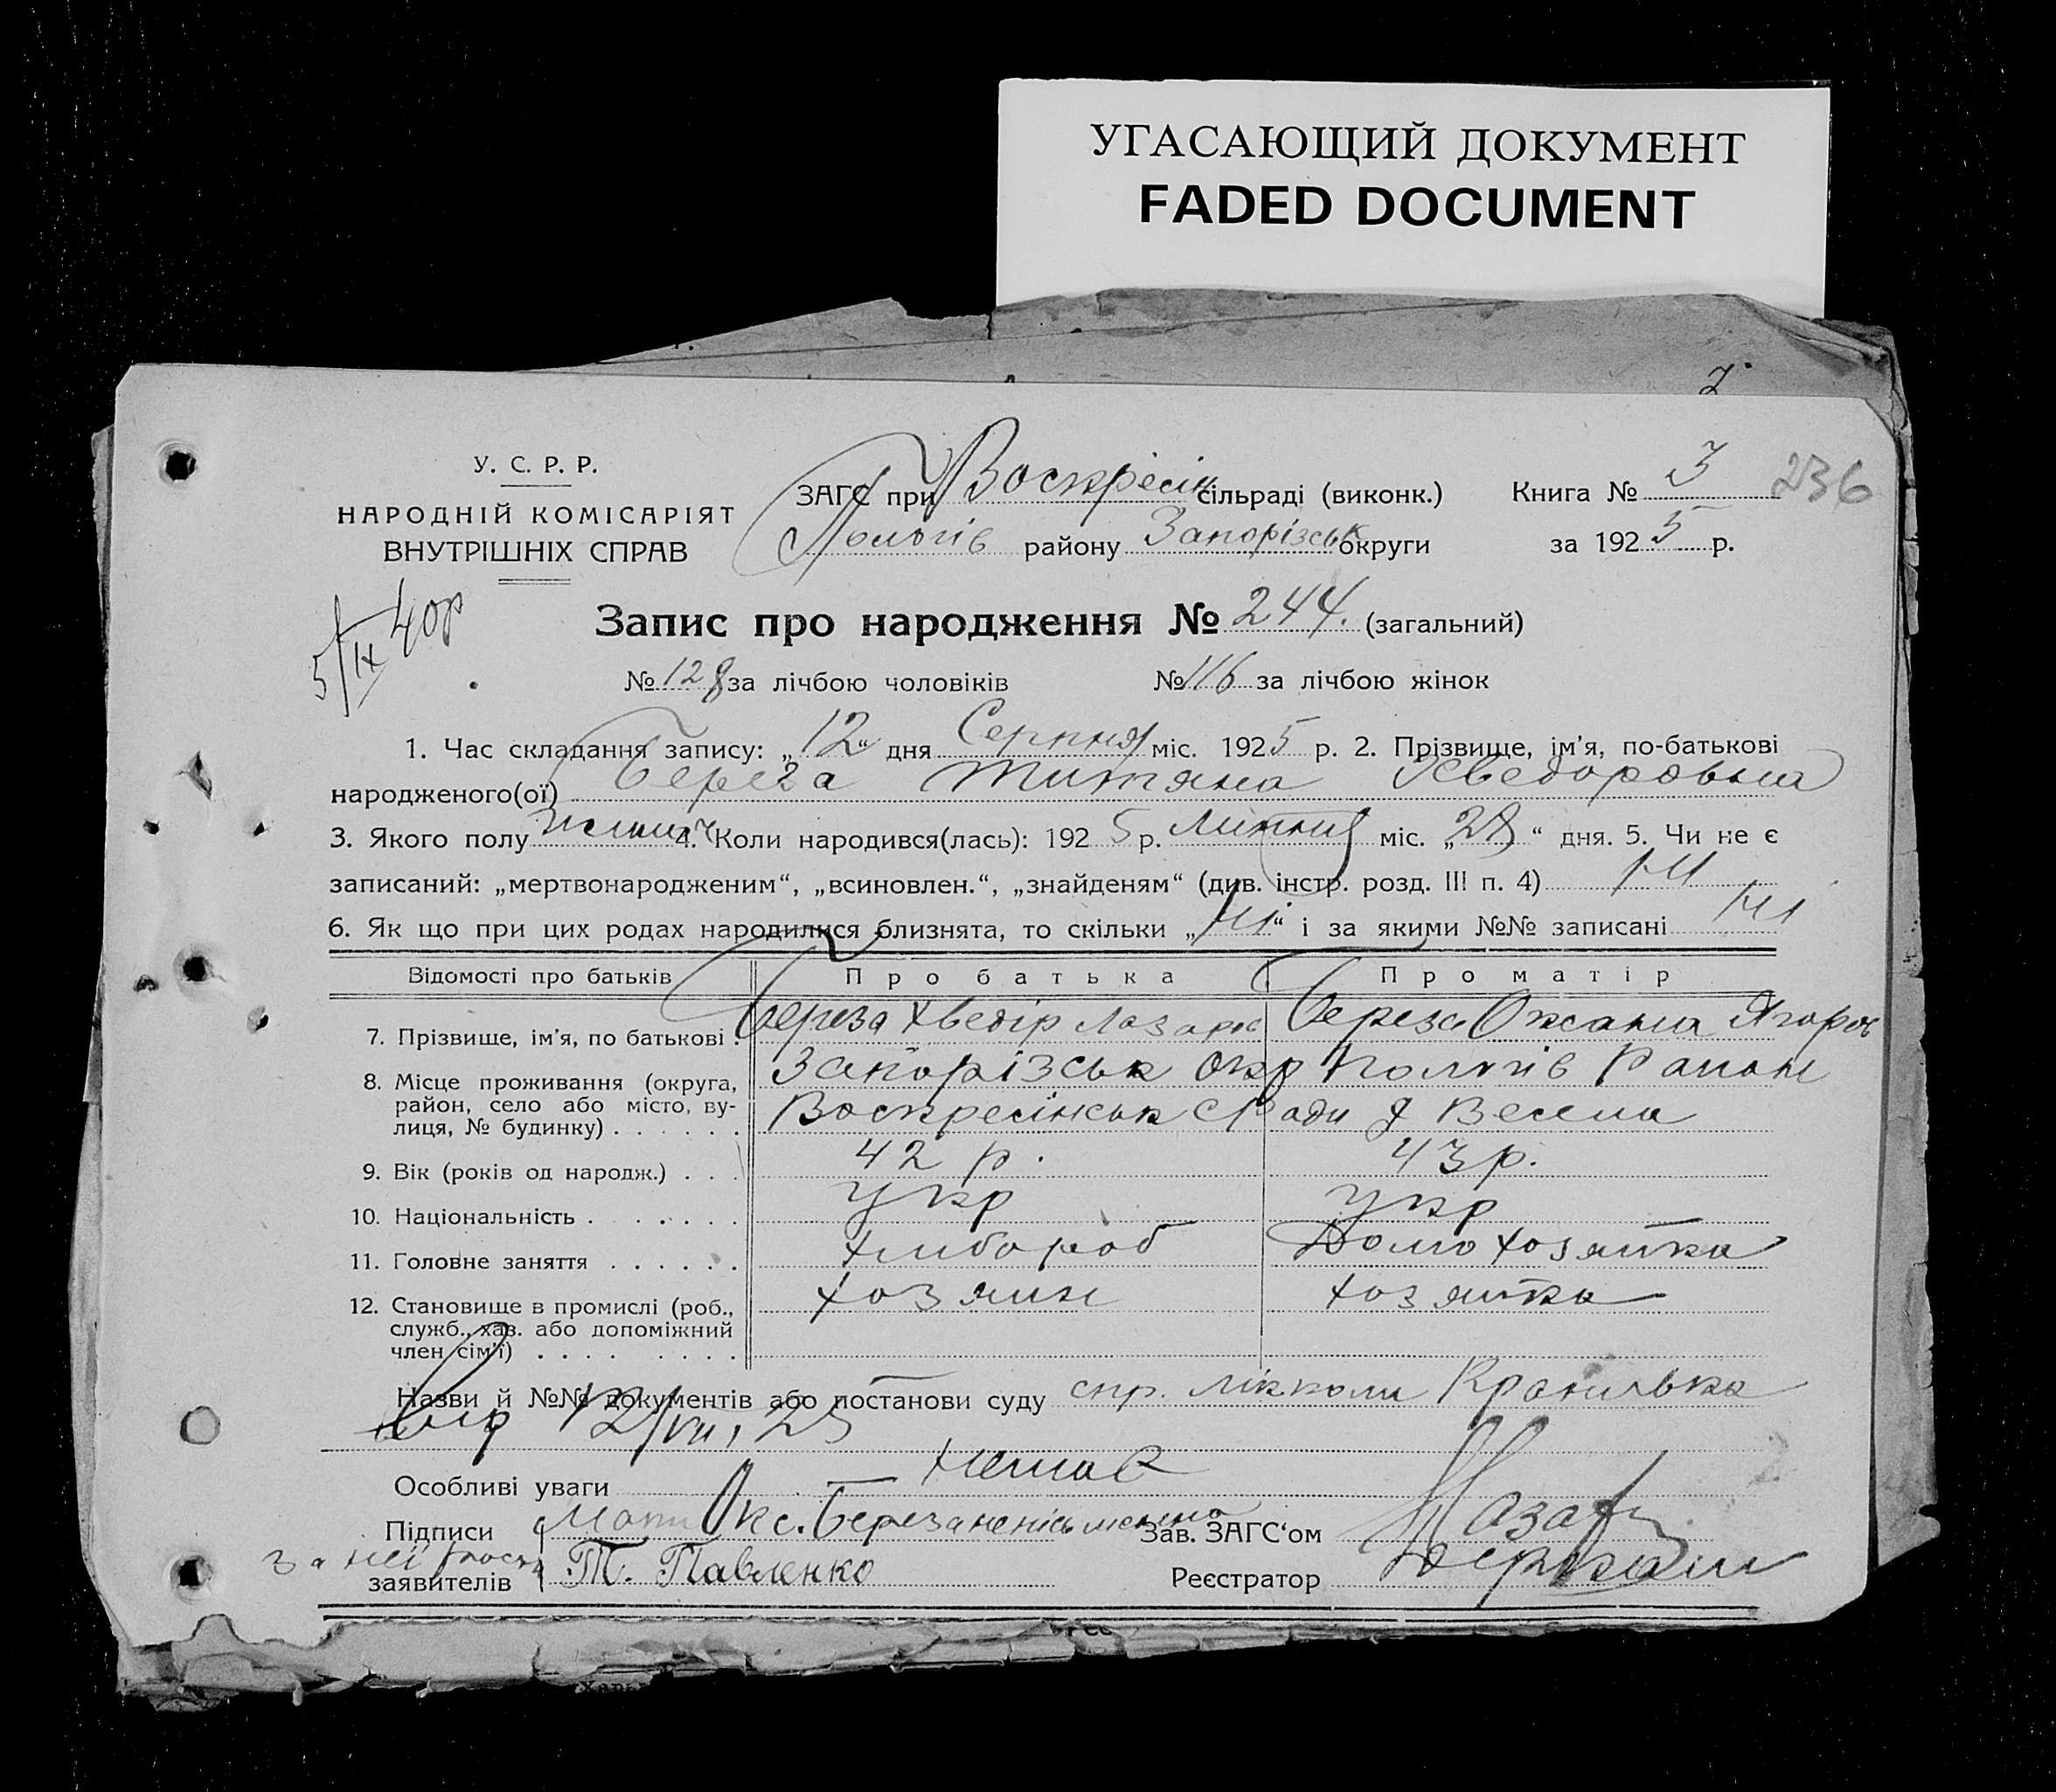 УГАСАЮЩИЙ ДОКУМЕНТ
FADED DOCUMENT
236
У. С. Р. Р.
НАРОДНІЙ КОМІСАРІЯТ
ВНУТРІШНІХ СПРАВ
ЗАГС при Воскресін сільраді (виконк.) Книга № 3
Пологів району Запорізськ округи за 1925 р.
5/IX 40р
Запис про народження № 244. (загальний)
№ 128 за лічбою чоловіків № 116 за лічбою жінок
1. Час складання запису: „12“ дня Серпня міс. 1925 р. 2. Прізвище, ім’я, по-батькові
народженого(ої) Береза Титяна Хведоровна
3. Якого полу жинич 4. Коли народився(лась): 1925 р. Липня міс. „28“ дня. 5. Чи не є
записаний: „мертвонародженим“, „всиновлен.“, „знайденям“ (див. інстр. розд. III п. 4) ні
6. Як що при цих родах народилися близнята, то скільки „ні“ і за якими №№ записані ні
Відомості про батьків Про батька Про матір
7. Прізвище, ім’я, по батькові . Береза Хведір Лазаров Береза Оксана Ягоров
8. Місце проживання (округа, район, село або місто, вулиця, № будинку) . . . . . . Запорізськ Окр Пологів Район
Воскресінськ С Ради Д Весела
9. Вік (років од народж.) . . . 42 р. 43 р.
10. Національність . . . . . . укр укр
11. Головне заняття . . . . . . Хлибороб Домохозяйка
12. Становище в промислі (роб., служб., хаз. або допоміжний член сім’ї) . . . . . . . . хозяин хозяйка
Назви й №№ документів або постанови суду спр. лікколи
від 12/VII, 25
Особливі уваги — Немає
Підписи Мати Окс. Береза неписьменна Зав. ЗАГС‘ом
за неї рост
заявителів Т. Павленко Реєстратор